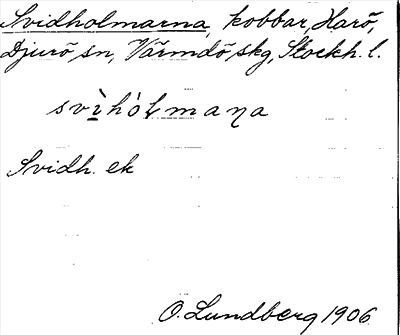 Svidholmarna, kobbar, Harö,
Djurö sn, Värmdö skg, Stockh. l.
svìhòɫmaƞa
Svidh. ek
O. Lundberg 1906